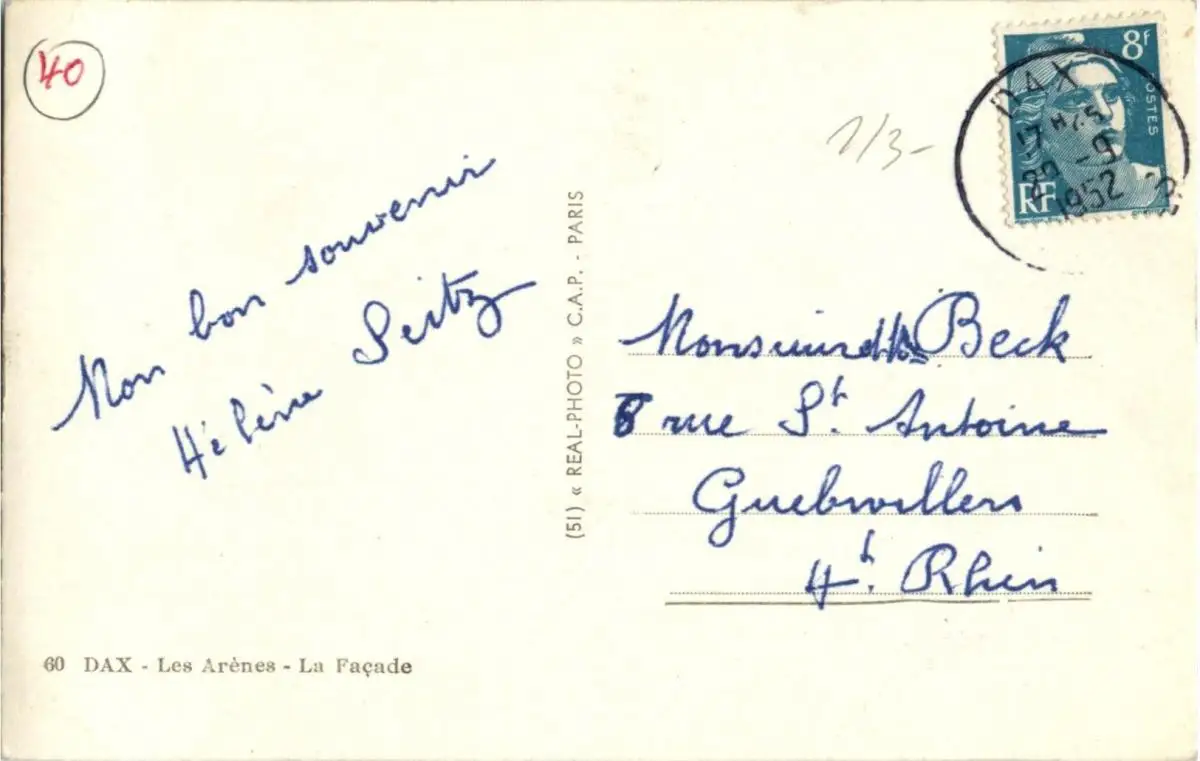 40
8f
POSTES
RF
DAX
17 H25
29 -9
1952
1/3-
Mon bon souvenir
Hélène Seitz
(51) « REAL-PHOTO » C.A.P. - PARIS
Monsieur Beck
8 rue St. Antoine
Guebwiller
Ht. Rhin
60 DAX - Les Arènes - La Façade